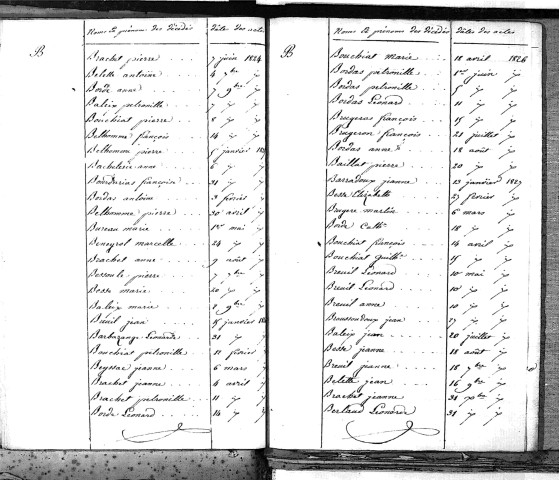 B
Noms & prénoms des décédés Dates des actes
Brachet pierre 7 juin 1824
Belette antoine 4 7bre
Borde anne 7 9bre
Baleix petronille 7
Bouchiat pierre 8
Belhomme françois 14
Belhomme pierre 5 janvier
Bachelerie anne 6
Bourderias françoise 31
Bordas antoine 3 février
Belhomme pierre 30 avril
Bureau marie 1er mai
Beneyrol marcelle 24
Brachet anne 9 août
Bessoule pierre 7 7bre
Besse marie 20
Baleix marie 2 9bre
Breuil jean 15 janvier
Barbazange Léonarde 31
Bouchiat petronille 12 février
Beyssac jeanne 6 mars
Brachet jeanne 4 avril
Brachet petronille 11
Borde Léonard 14
B
Noms & prénoms des décédés Dates des actes
Bouchiat marie 18 avril 1826
Bordas petronille 1er juin
Bordas petronille 5
Bordas Léonard 11
Brugeras françois 15
Brugeron françois 21 juillet
Bordas anne 18 août
Baillet pierre 20
Barradoux jeanne 13 janvier 1827
Besse Elizabeth 27 février
Brugere martin 6 mars
Borde Cathe 18
Bouchiat françois 14 avril
Bouchiat guilhe 15
Breuil Léonard 10 mai
Breuil Léonard 10
Breuil anne 10
Broussoudoux jean 27
Baleix jean 20 juillet
Besse jeanne 18 août
Breuil jeanne 18 7bre
Belette jean 16 9bre
Brachet jeanne 31 xbre
Bertaud Léonarde 31